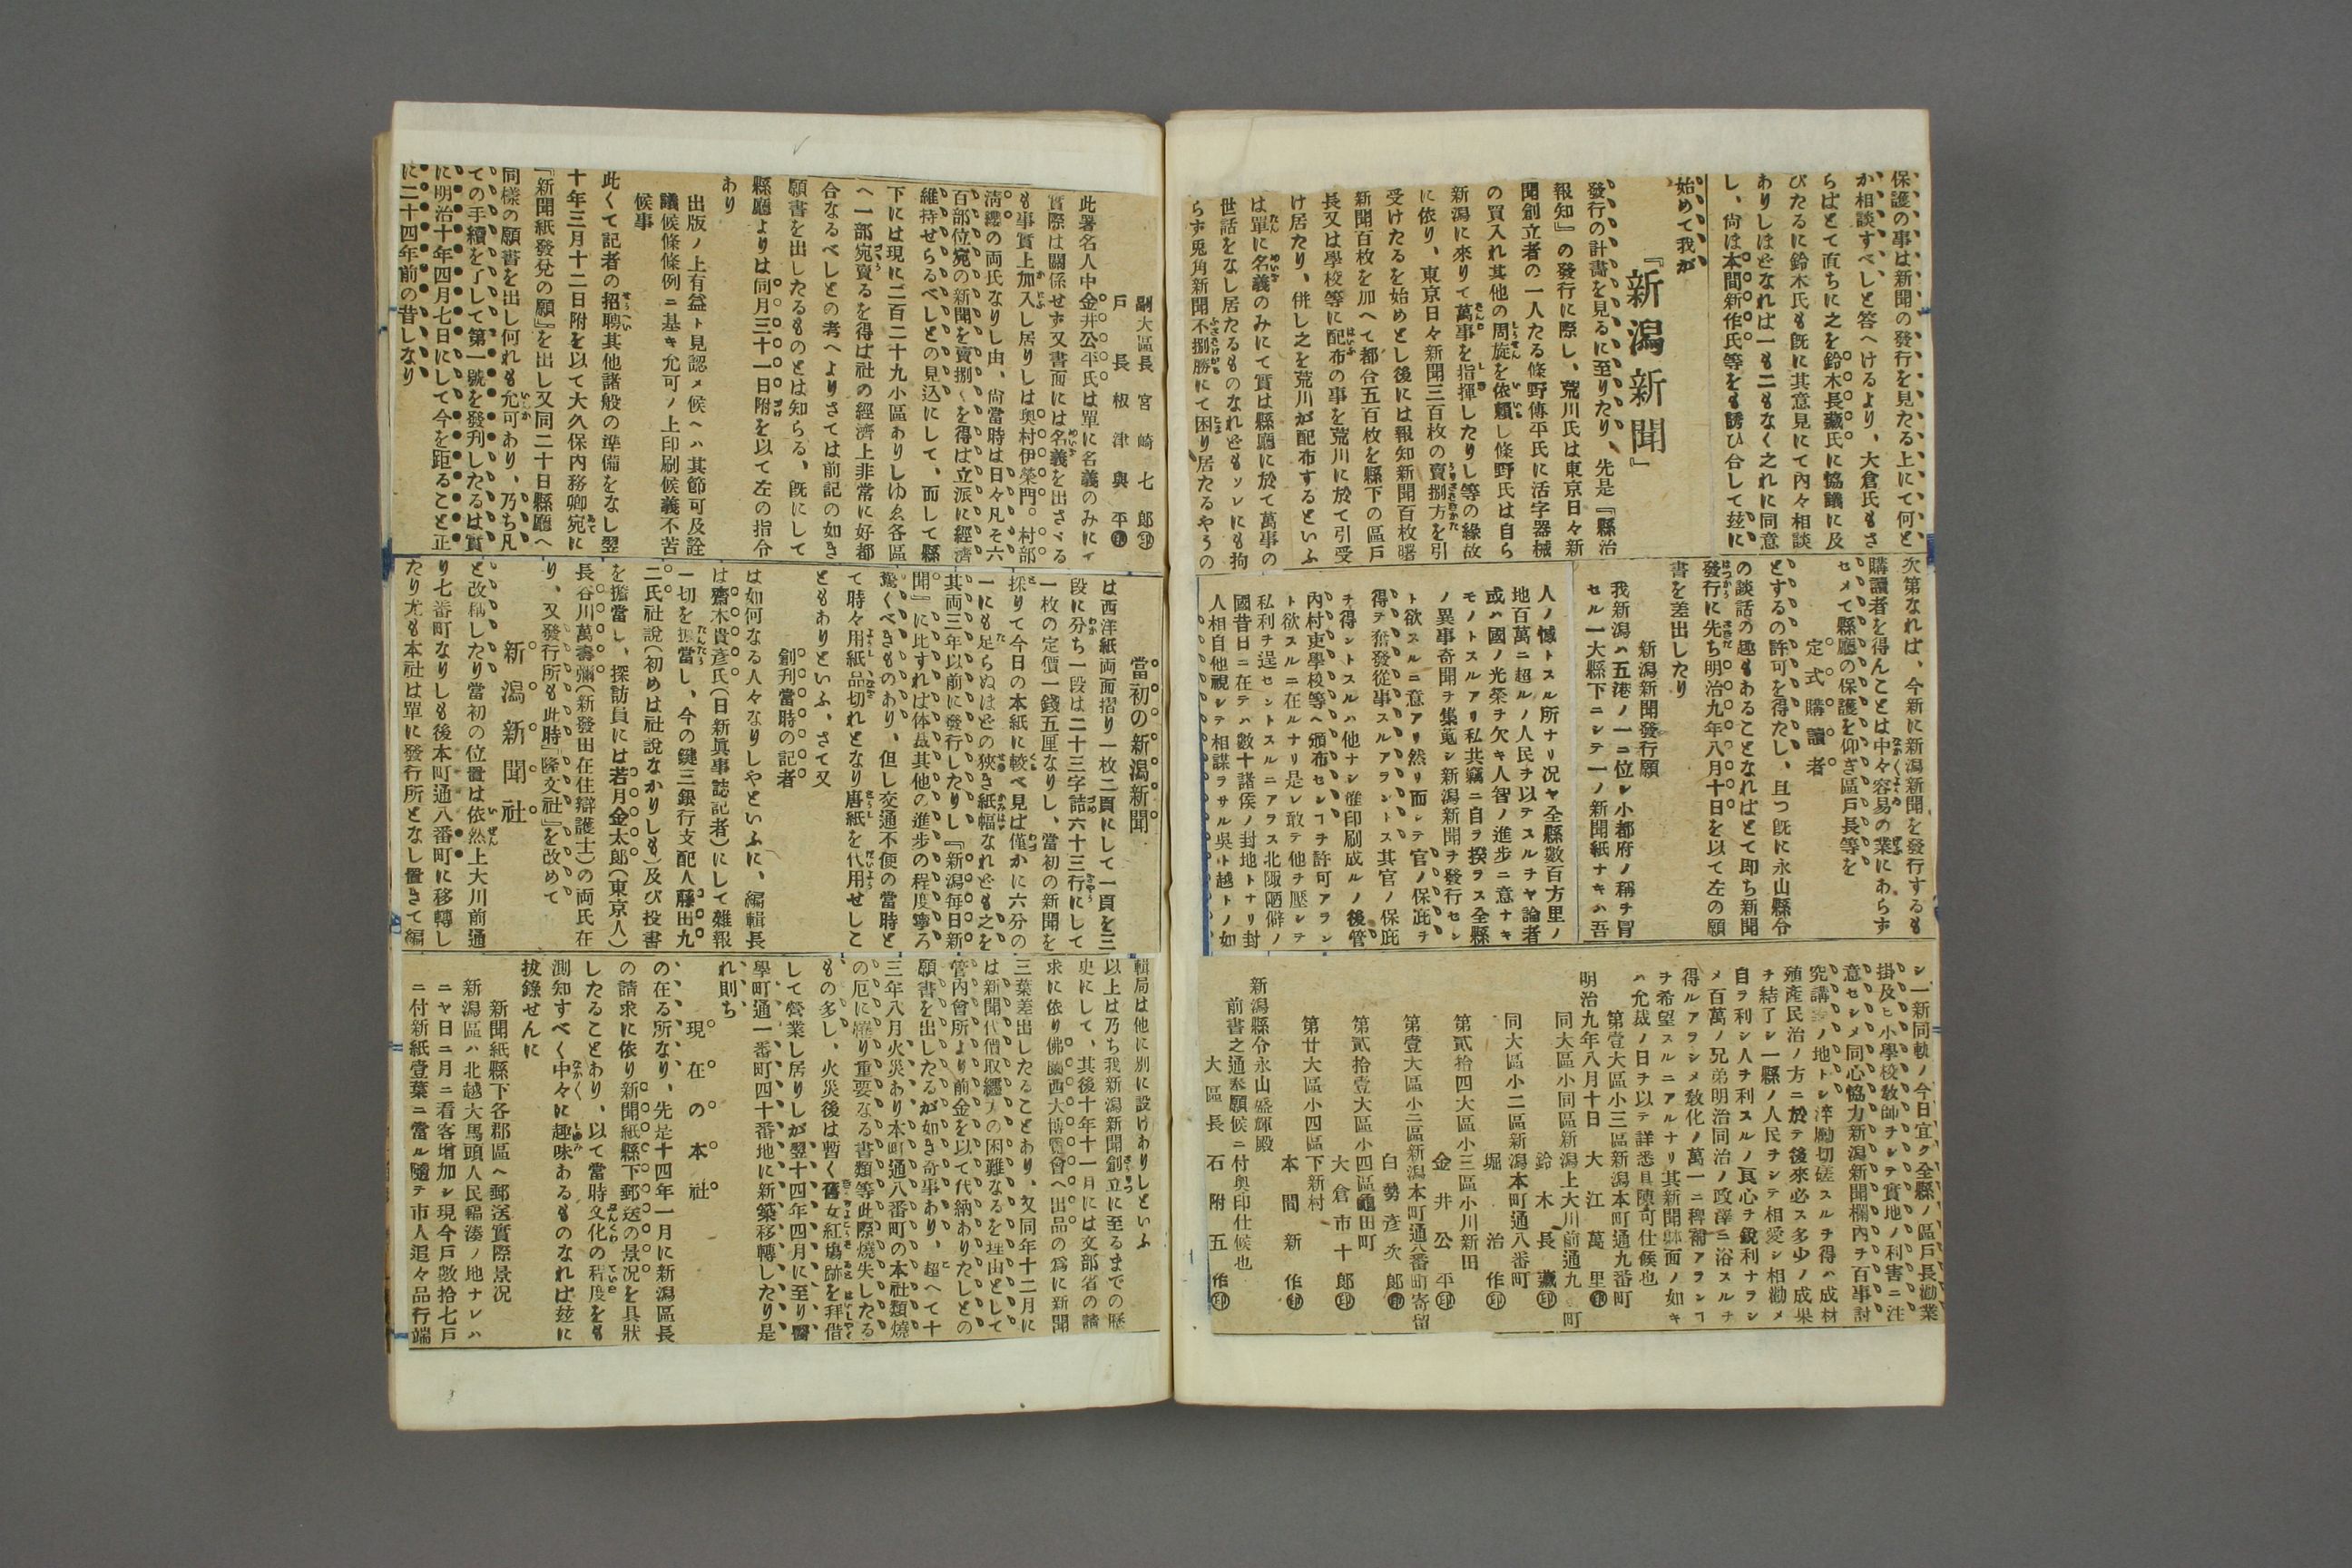 保護の事は新聞の發行を見たる上にて何と
か相談すべしと答へけるより、大倉氏もさ
らばとて直ちに之を鈴木長藏氏に協議に及
びたるに鈴木氏も旣に其意見にて內々相談
ありしほどなれば一も二もなく之れに同意
し、尙ほ本間新作氏等をも誘ひ合して玆に
始めて我が
『新潟新聞』
發行の計畵を見るに至りたり、先是『縣治
報知』の發行に際し、荒川氏は東京日々新
聞創立者の一人たる條野傳平氏に活字器械
の買入れ其他の周旋を依賴し條野氏は自ら
新潟に來りて萬事を指揮したりし等の緣故
に依り、東京日々新聞三百枚の賣捌方を引
受けたるを始めとし後には報知新聞百枚曙
新聞百枚を加へて都合五百枚を縣下の區戶
長又は學校等に配布の事を荒川に於て引受
け居たり、併し之を荒川が配布するといふ
は單に名義のみにて實は縣廳に於て萬事の
世話をなし居たるものなれどもソレにも拘
らず兎角新聞不捌勝にて困り居たるやうの
次第なれば、今新に新潟新聞を發行するも
購讀者を得んことは中々容易の業にあらず
せめて縣廳の保護を仰ぎ區戶長等を
定式購讀者
とするの許可を得たし、且つ旣に永山縣令
の談話の趣もあることなればとて卽ち新聞
發行に先ち明治九年八月十日を以て左の願
書を差出したり
新潟新聞發行願
我新潟ハ五港ノ一ニ位シ小都府ノ稱チ冐
セル一大縣下ニシテ一ノ新聞紙ナキハ吾
人ノ憾トスル所ナリ况ヤ全縣數百方里ノ
地百萬ニ超ルノ人民チ以テスルチヤ論者
或ハ國ノ光榮チ欠キ人智ノ進步ニ意ナキ
モノトスルアリ私共竊ニ自ラ揆ラス全縣
ノ異事奇聞チ集蒐シ新潟新聞チ發行セン
ト欲スルニ意アリ然リ而シテ官ノ保庇チ
得テ奮發從事スルアラントス其官ノ保庇
チ得ントスルハ他ナシ雒印刷成ルノ後管
內村吏學校等ヘ頒布センコチ許可アラン
ト欲スルニ在ルナリ是レ敢テ他チ壓シテ
私利チ逞セントスルニアラス北陬陋僻ノ
國昔日ニ在テハ數十諸侯ノ封地トナリ封
人相自他視シテ相謀ラサル吳ト越トノ如
シ一新同軌ノ今日宜ク全縣ノ區戶長勸業
掛及ヒ小學校敎師チシテ實地ノ利害ニ注
意セシメ同心協力新潟新聞欄內チ百事討
究講ノ地トシ淬勵切磋スルチ得ハ成材
殖產民治ノ方ニ於テ後來必ス多少ノ成果
チ結了シ一縣ノ人民チシテ相愛シ相勸メ
自ラ利シ人チ利スルノ良心チ銳利ナラシ
メ百萬ノ兄弟明治同治ノ政澤ニ浴スルチ
得ルアラシメ敎化ノ萬一ニ稗補アランコ
チ希望スルニアルナリ其新聞躰面ノ如キ
ハ允裁ノ日チ以テ詳悉具陳可仕候也
第壹大區小三區新潟本町通九番町
明治九年八月十日 大江萬里㊞
同大區小同區新潟上大川前通九町
鈴木長藏㊞
同大區小二區新潟本町通八番町
堀治作㊞
第貳拾四大區小三區小川新田
金井公平㊞
第壹大區小二區新潟本町通八番町寄留
白勢彥次郎㊞
第貳拾壹大區小四區龜田町
大倉市十郎㊞
第廿大區小四區下新村
本間新作㊞
新潟縣令永山盛輝殿
前書之通奉願候ニ付奧印仕候也
大區長 石附五作㊞
副大區長 宮崎七郎㊞
戶長 板津與平㊞
此署名人中金井公平氏は單に名義のみにィ
實際は關係せず又書面には名義を出さゞる
も事實上加入し居りしは奧村伊榮門。村部
淸纓の両氏なりし由、尙當時は日々凡そ六
百部位宛の新聞を賣捌くを得は立派に經濟
維持せらるべしとの見込にして、而して縣
下には現に二百二十九小區ありしゆゑ各區
へ一部宛賣るを得ば社の經濟上非常に好都
合なるべしとの考へよりさては前記の如き
願書を出したるものとは知らる、旣にして
縣廳よりは同月三十一日附を以て左の指令
あり
出版ノ上有益ト見認メ候ヘハ其節可及詮
議候條條例ニ基キ允可ノ上印刷候義不苦
候事
此くて記者の招聘其他諸般の準備をなし翌
十年三月十二日附を以て大久保內務卿宛に
『新聞紙發兌の願』を出し又同二十日縣廳へ
同樣の願書を出し何れも允可あり、乃ち凡
ての手續を了して第一號を發刋したるは實
に明治十年四月七日にして今を距ること正
に二十四年前の昔しなり
當初の新潟新聞
は西洋紙両面摺り一枚二頁にして一頁を三
段に分ち一段は二十三字詰六十三行にして
一枚の定價一錢五厘なりし、當初の新聞を
採りて今日の本紙に較べ見ば僅かに六分の
一にも足らぬほどの狹き紙幅なれども之を
其両三年以前に發行したりし『新潟每日新
聞』に比すれは体裁其他の進步の程度寧ろ
驚くべきものあり、但し交通不便の當時と
て時々用紙品切れとなり唐紙を代用せしこ
ともありといふ、さて又
創刋當時の記者
は如何なる人々なりしやといふに、編輯長
は齋木貴彥氏(日新眞事誌記者)にして雜報
一切を擔當し、今の鍵三銀行支配人藤田九
二氏社說(初めは社說なかりしも)及び投書
を擔當し、探訪員には若月金太郞(東京人)
長谷川萬壽彌(新發田在住辯護士)の両氏在
り、又發行所も此時『隆文社』を改めて
新潟新聞社
と改稱したり當初の位置は依然上大川前通
り七番町なりしも後本町通八番町に移轉し
たり尤も本社は單に發行所となし置きて編
輯局は他に別に設けありしといふ
以上は乃ち我新潟新聞創立に至るまでの歷
史にして、其後十年十一月には文部省の請
求に依り佛蘭西大博覽會へ出品の爲に新聞
三葉差出したることあり、又同年十二月に
は新聞代價取纒方の困難なるを理由として
管內曾所より前金を以て代納ありたしとの
願書を出したるが如き奇事あり、超へて十
三年八月火災あり本町通八番町の本社類燒
の厄に罹り重要なる書類等此際燒失したる
もの多し、火災後は暫く舊女紅塲跡を拜借
して營業し居りしが翌十四年四月に至り醫
學町通一番町四十番地に新築移轉したり是
れ則ち
現在の本社
の在る所なり、先是十四年一月に新潟區長
の請求に依り新聞紙縣下郵送の景況を具狀
したることあり、以て當時文化の程度をも
測知すべく中々に趣味あるものなれば玆に
拔錄せんに
新聞紙縣下各郡區ヘ郵送實際景况
新潟區ハ北越大馬頭人民輻湊ノ地ナレハ
ニヤ日ニ月ニ看客增加シ現今戶數拾七戶
ニ付新紙壹葉ニ當ル隨テ市人追々品行端